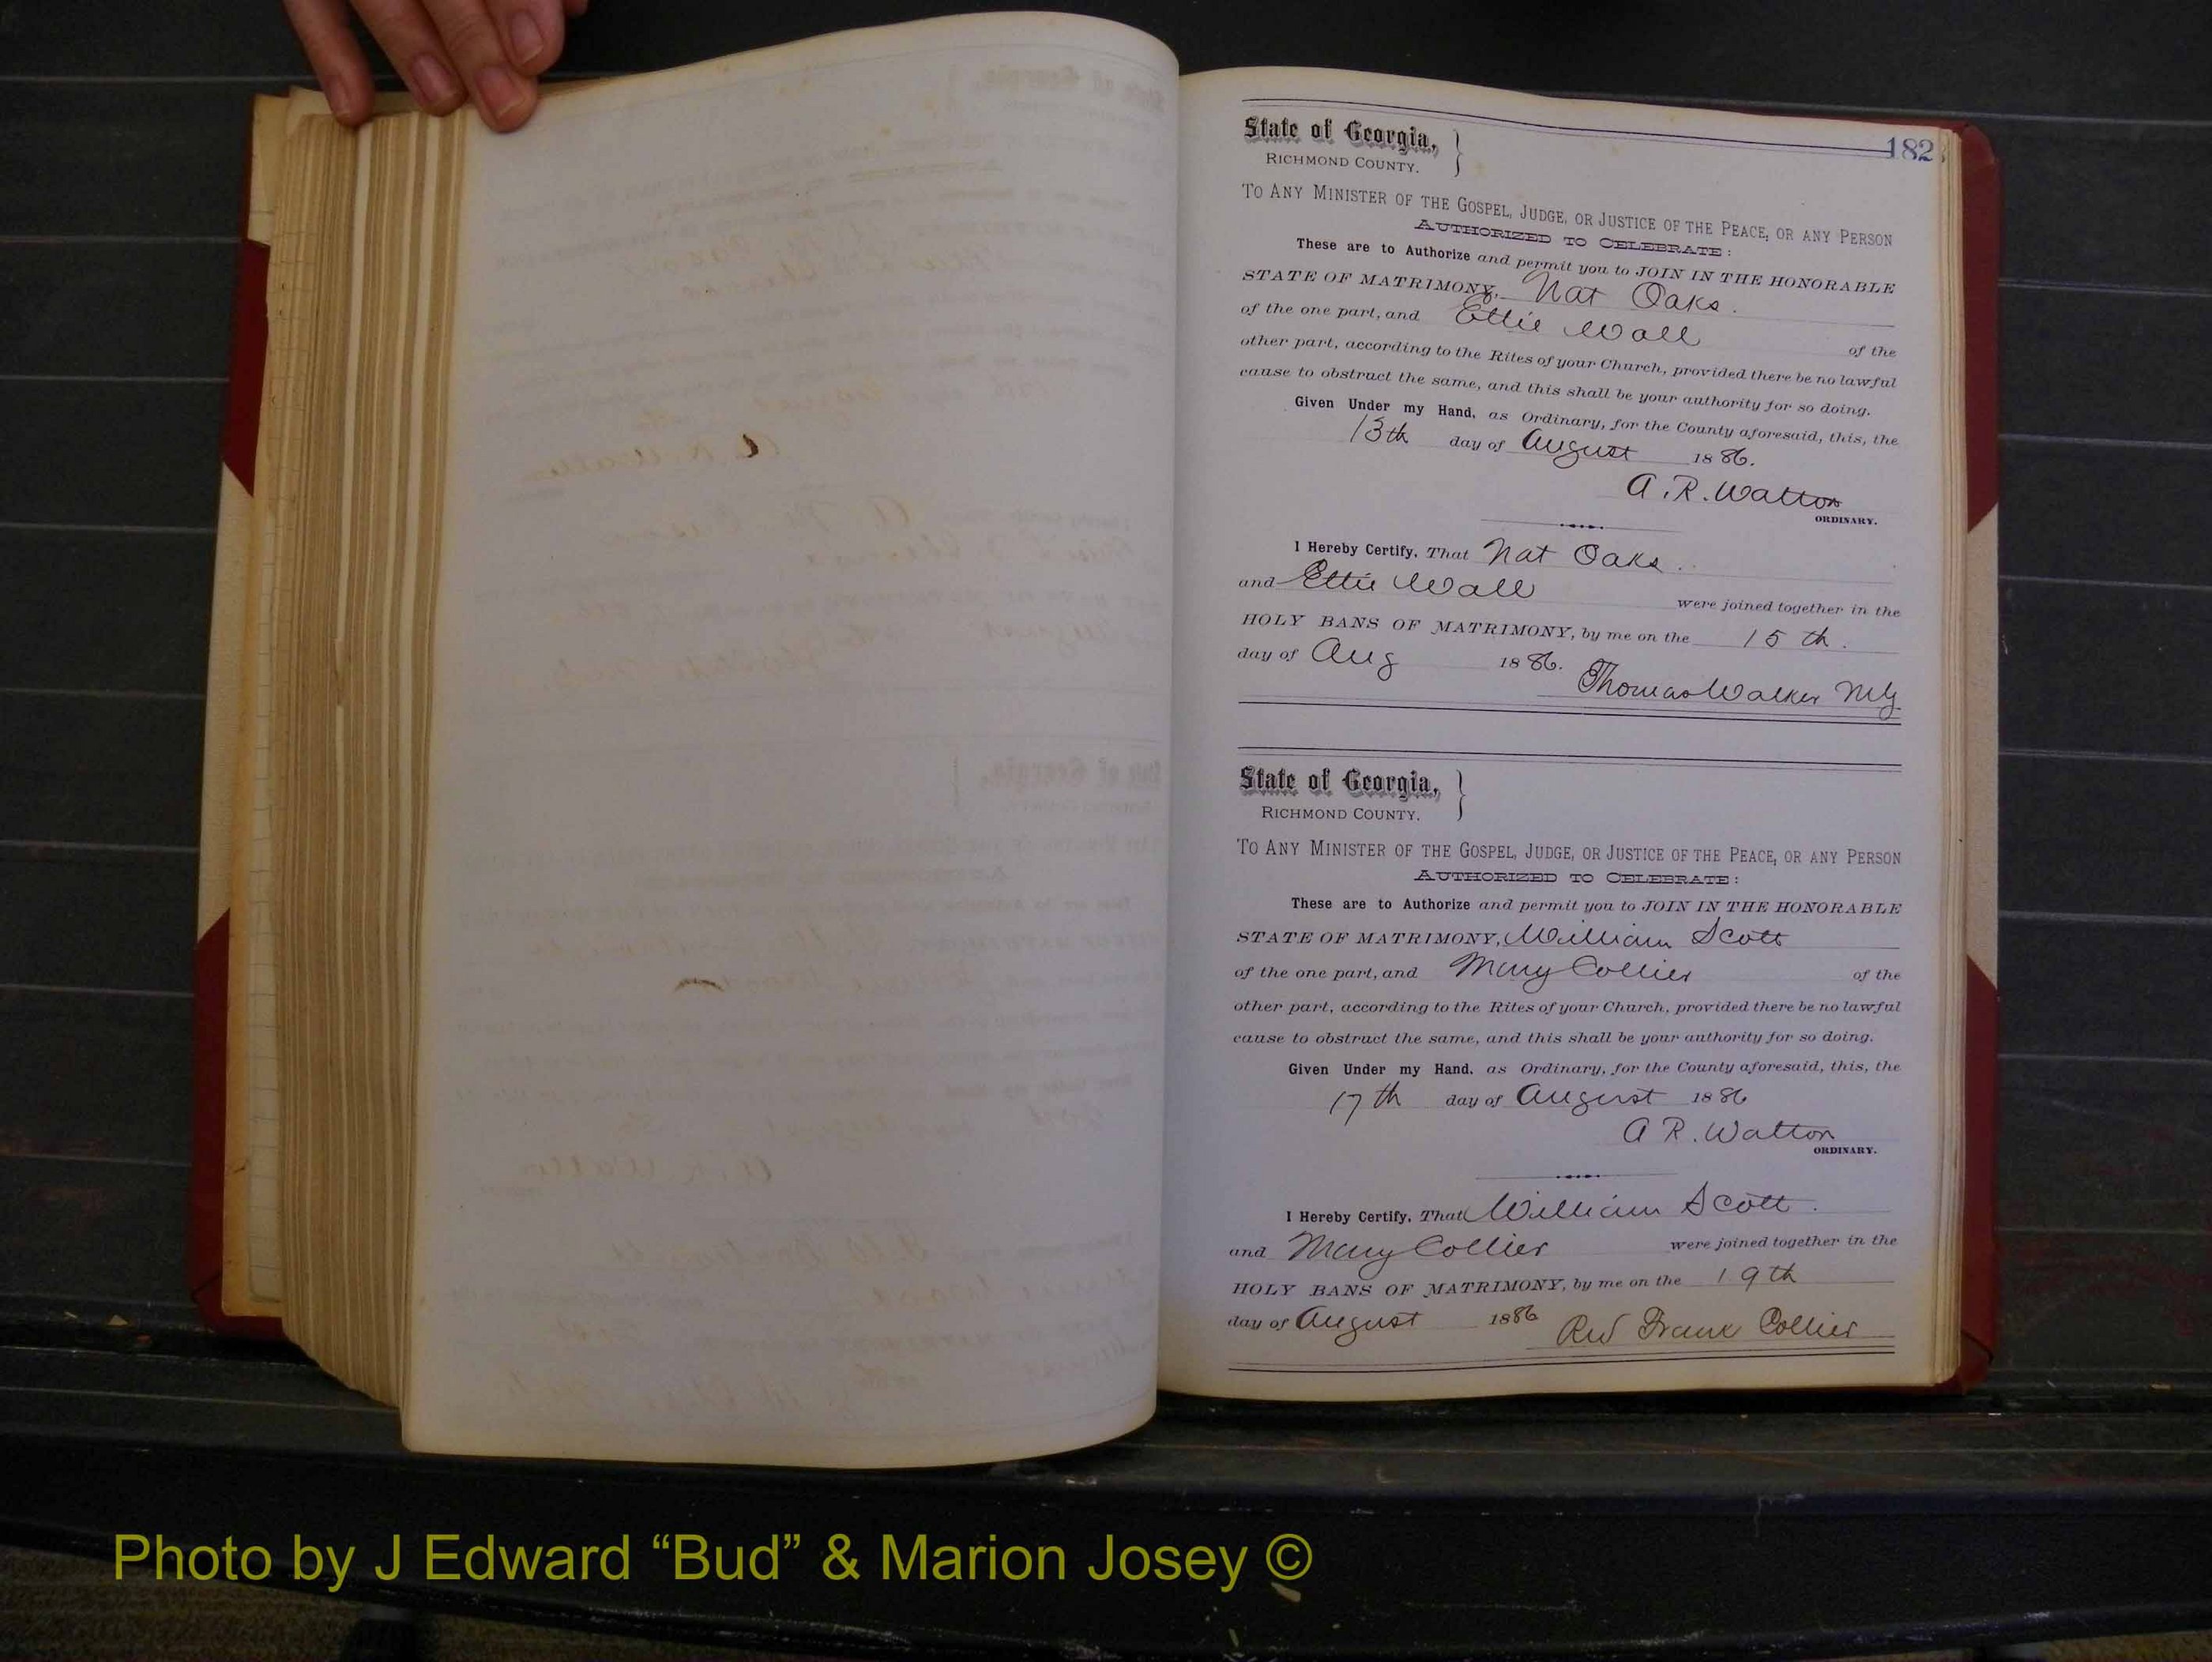 182
State of Georgia, }
RICHMOND COUNTY.
TO ANY MINISTER OF THE GOSPEL, JUDGE, OR JUSTICE OF THE PEACE, OR ANY PERSON
AUTHORIZED TO CELEBRATE:
These are to Authorize and permit you to JOIN IN THE HONORABLE
STATE OF MATRIMONY, Nat Oaks.
of the one part, and Ettie Wall of the
other part, according to the Rites of your Church, provided there be no lawful
cause to obstruct the same, and this shall be your authority for so doing.
Given Under my Hand, as Ordinary, for the County aforesaid, this, the
13th day of August 1886.
A. R. Walton
ORDINARY.
I Hereby Certify, That Nat Oaks.
and Ettie Wall were joined together in the
HOLY BANS OF MATRIMONY, by me on the 15th.
day of Aug 1886.
Thomas Walker MG
State of Georgia, }
RICHMOND COUNTY.
TO ANY MINISTER OF THE GOSPEL, JUDGE, OR JUSTICE OF THE PEACE, OR ANY PERSON
AUTHORIZED TO CELEBRATE:
These are to Authorize and permit you to JOIN IN THE HONORABLE
STATE OF MATRIMONY, William Scott
of the one part, and Mary Collier of the
other part, according to the Rites of your Church, provided there be no lawful
cause to obstruct the same, and this shall be your authority for so doing.
Given Under my Hand, as Ordinary, for the County aforesaid, this, the
17th day of August 1886
A R. Walton
ORDINARY.
I Hereby Certify, That William Scott.
and Mary Collier were joined together in the
HOLY BANS OF MATRIMONY, by me on the 19th
day of August 1886
Rev Frank Collier
Photo by J Edward “Bud” & Marion Josey ©